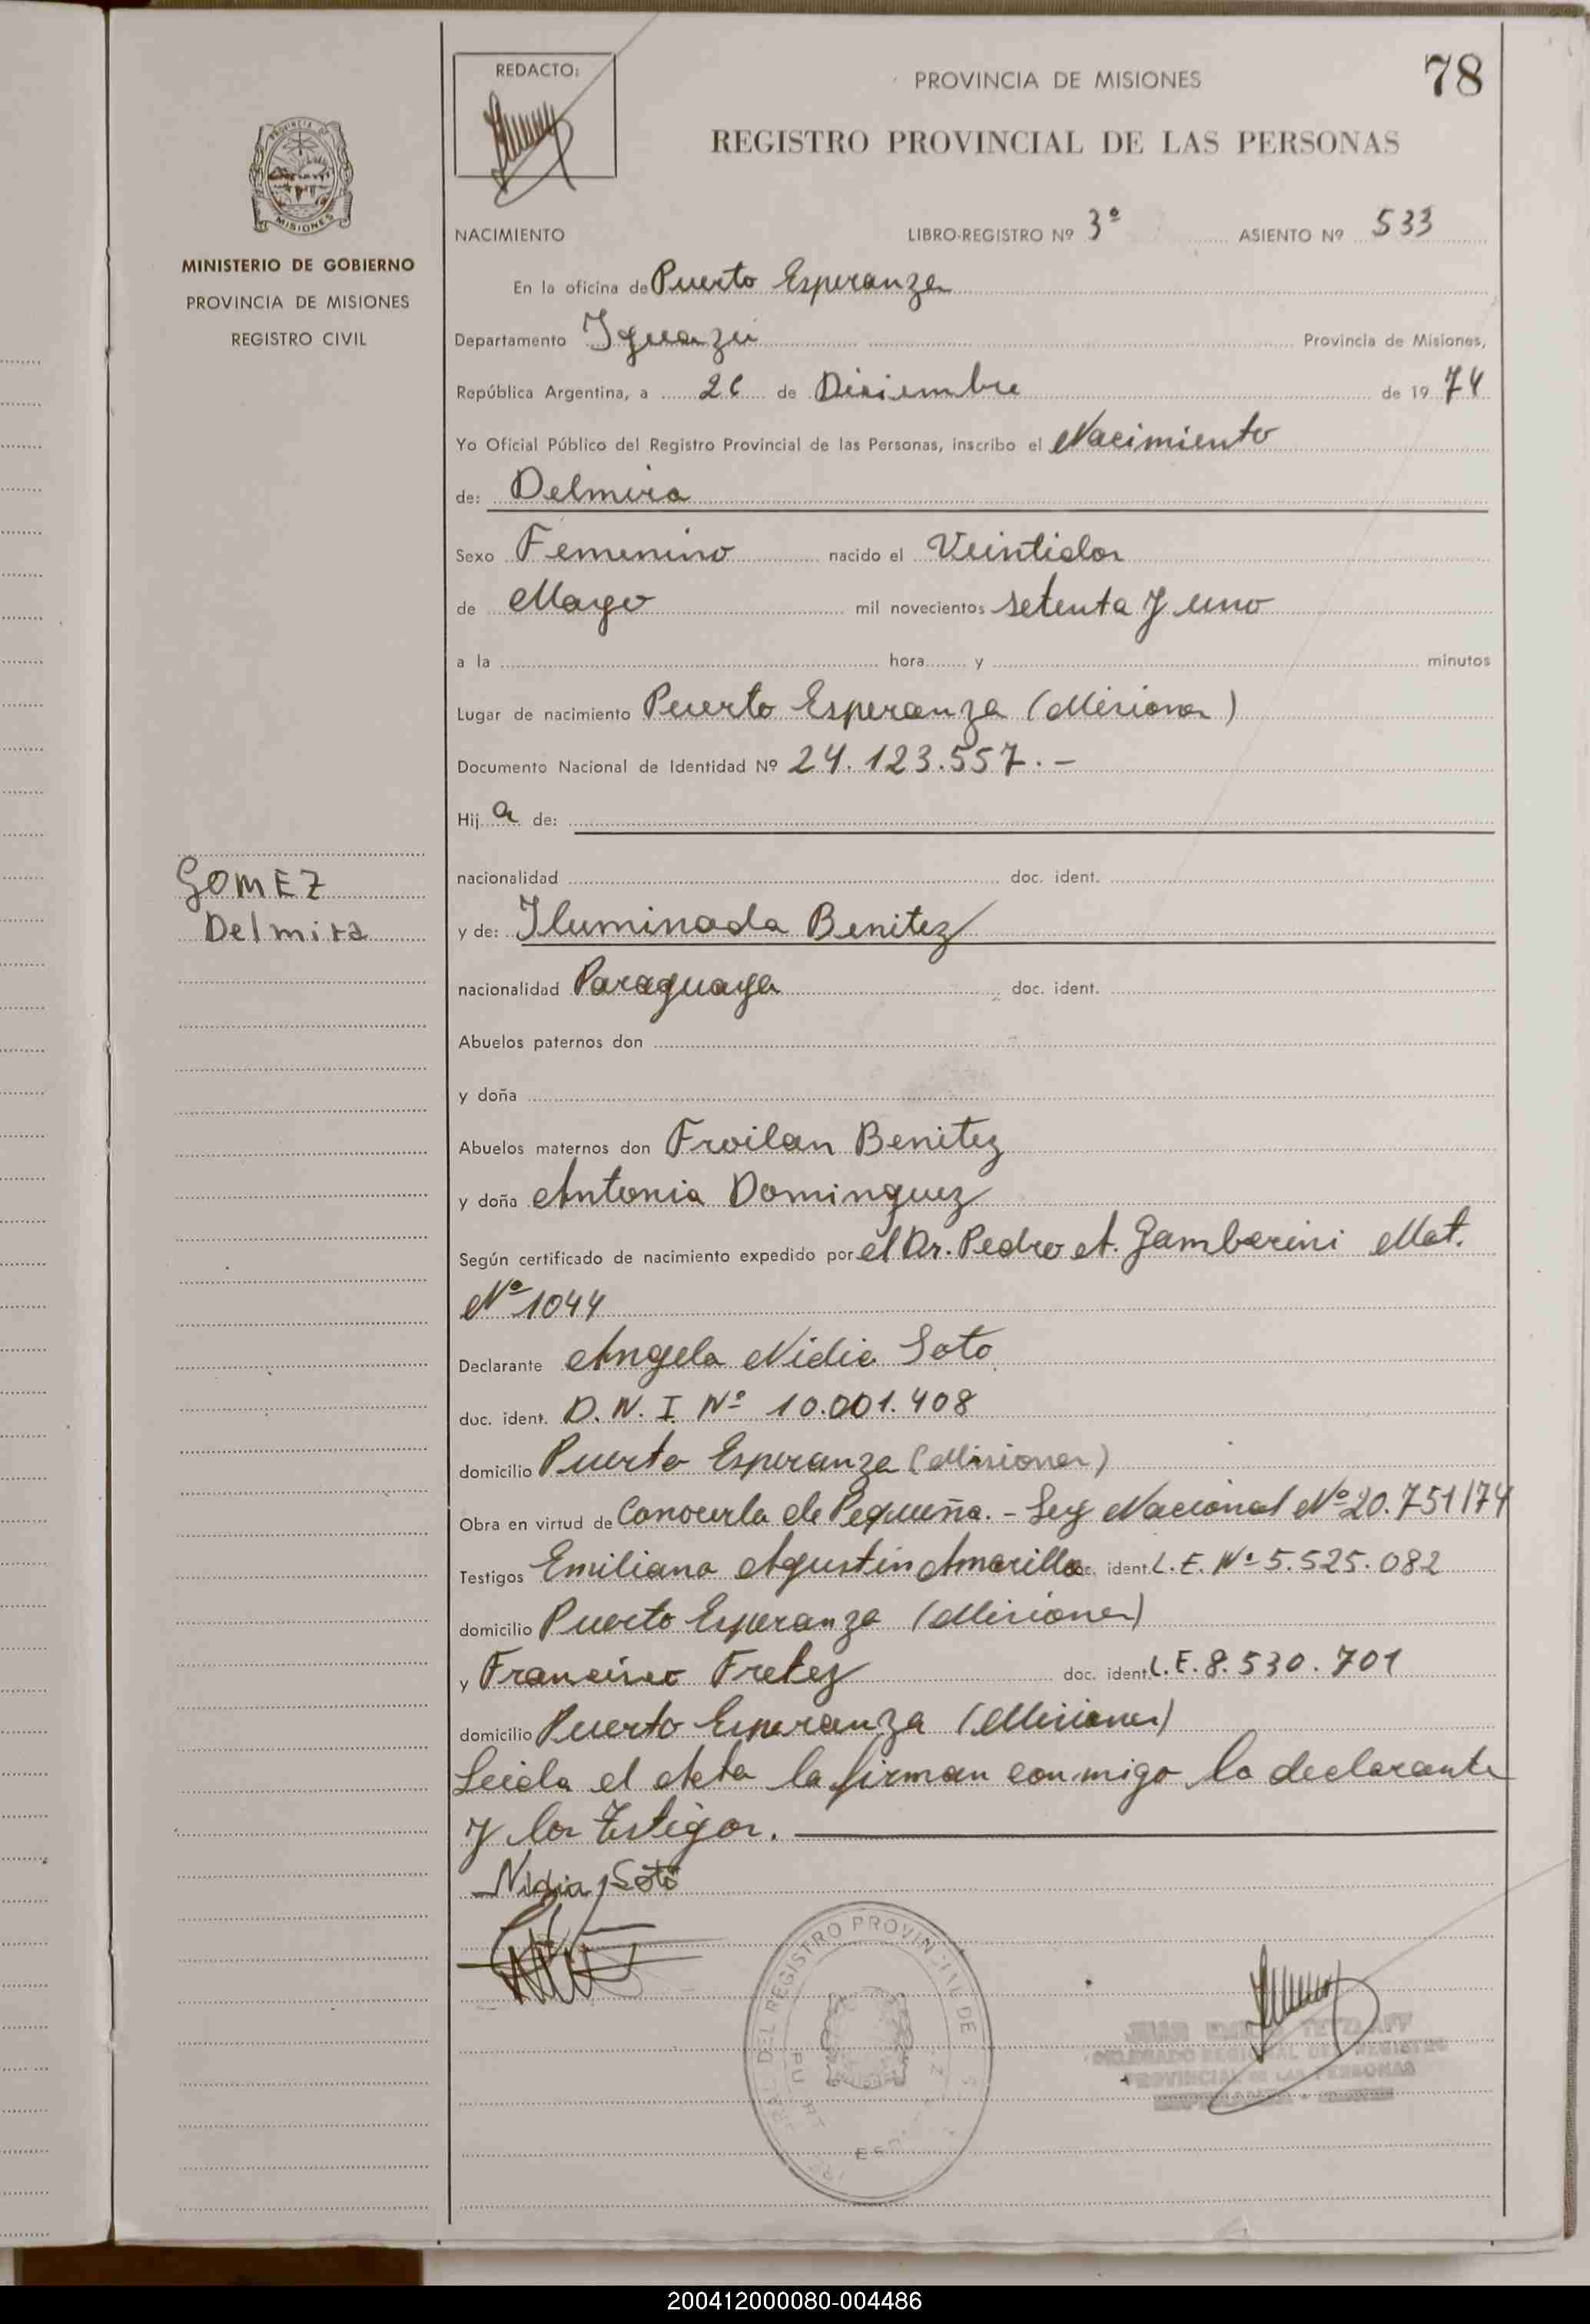 REDACTO:
PROVINCIA DE MISIONES
78
REGISTRO PROVINCIAL DE LAS PERSONAS
MISIONES
MINISTERIO DE GOBIERNO
PROVINCIA DE MISIONES
REGISTRO CIVIL
NACIMIENTO LIBRO-REGISTRO Nº 3º ASIENTO Nº 533
En la oficina de Puerto Esperanza
Departamento Iguazú Provincia de Misiones,
República Argentina, a 26 de Diciembre de 1974
Yo Oficial Público del Registro Provincial de las Personas, inscribo el Nacimiento
de: Delmira
Sexo Femenino nacido el Veintidos
de Mayo mil novecientos setenta y uno
a la hora y minutos
Lugar de nacimiento Puerto Esperanza (Misiones)
Documento Nacional de Identidad Nº 24.123.557.-
Hij a de:
nacionalidad doc. ident.
GOMEZ
Delmira
y de: Iluminada Benitez
nacionalidad Paraguaya doc. ident.
Abuelos paternos don
y doña
Abuelos maternos don Froilan Benitez
y doña Antonia Dominguez
Según certificado de nacimiento expedido por el Dr. Pedro A. Gamberini Mat.
Nº 1044
Declarante Angela Nidia Soto
doc. ident. D.N.I. Nº 10.001.408
domicilio Puerto Esperanza (Misiones)
Obra en virtud de Conocerla de Pequeña.- Ley Nacional Nº 20.751/74
Testigos Emiliano Agustin Amarilla doc. ident. L.E. Nº 5.525.082
domicilio Puerto Esperanza (Misiones)
y Francisco Fretez doc. ident. L.E. 8.530.701
domicilio Puerto Esperanza (Misiones)
Leida el Acta la firman conmigo la declarante
y los Testigos.
Nidia Soto
DEL REGISTRO PROVINCIAL DE
JUAN EMILIO TETZLAFF
DELEGADO REGIONAL DEL REGISTRO
PROVINCIAL DE LAS PERSONAS
ESPERANZA - MISIONES
200412000080-004486